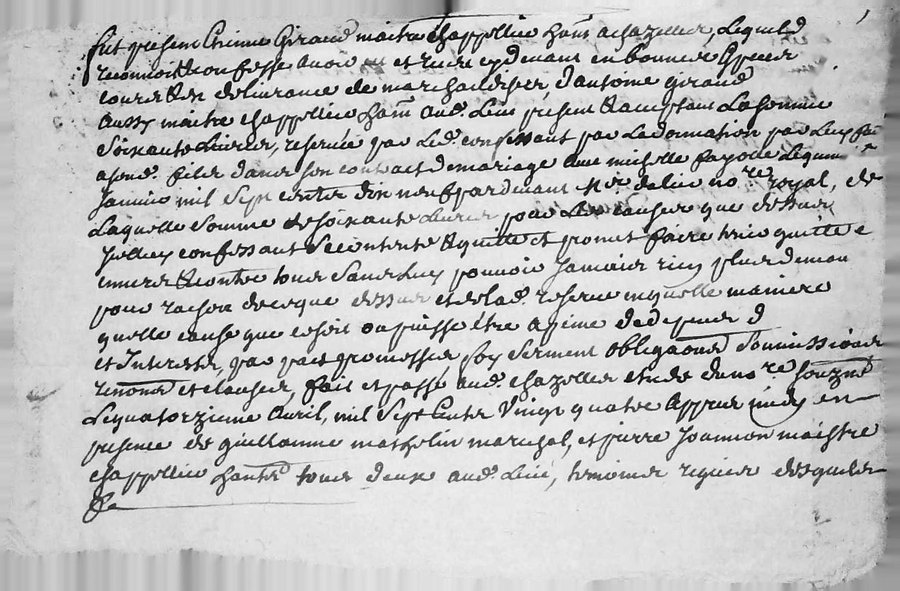 fut present Etienne Giraud maitre Chappellier hant a chazelles, Lequel d
reconnoit & confesse avoir eu et receu cydevant en bonnes Especes
cours & delivrance de marchandises d'antoine giraud
aussy maitre chappellier hant aud. Lieu present & acceptant La somme
Soixante Livres, reservée par Led. confessant par La donnation par Luy fai
a sond. filz dans son contract de mariage avec michelle fayolle Le
Janvier mil Sept centz dix neuf par devant Mre dalier nore royal, de
Laquelle Somme de Soixante Livres par Les causes que dessus
Jcelluy confessant Se contente & quitte et promet faire tenir quitte e
envers & contre tous Sans Luy pouvoir Jamais rien plus deman
pour raison de ce que dessus et de lad. reserve en quelle maniere
quelle cause que ce soit ou puisse être a peine de depens d
et Interests, par promesses foy Serment obligaons Soumissions
renons et clauses, fait et passé aud. chazelles etude du nore Souzné
Le quatorzieme Avril, mil Sept Centz Vingt quatre Appres midy en
presence de guillaume mathelin marechal, et pierre Joannon maistre
chappellier hantz tous deux aud. Lieu, temoins requis desquels